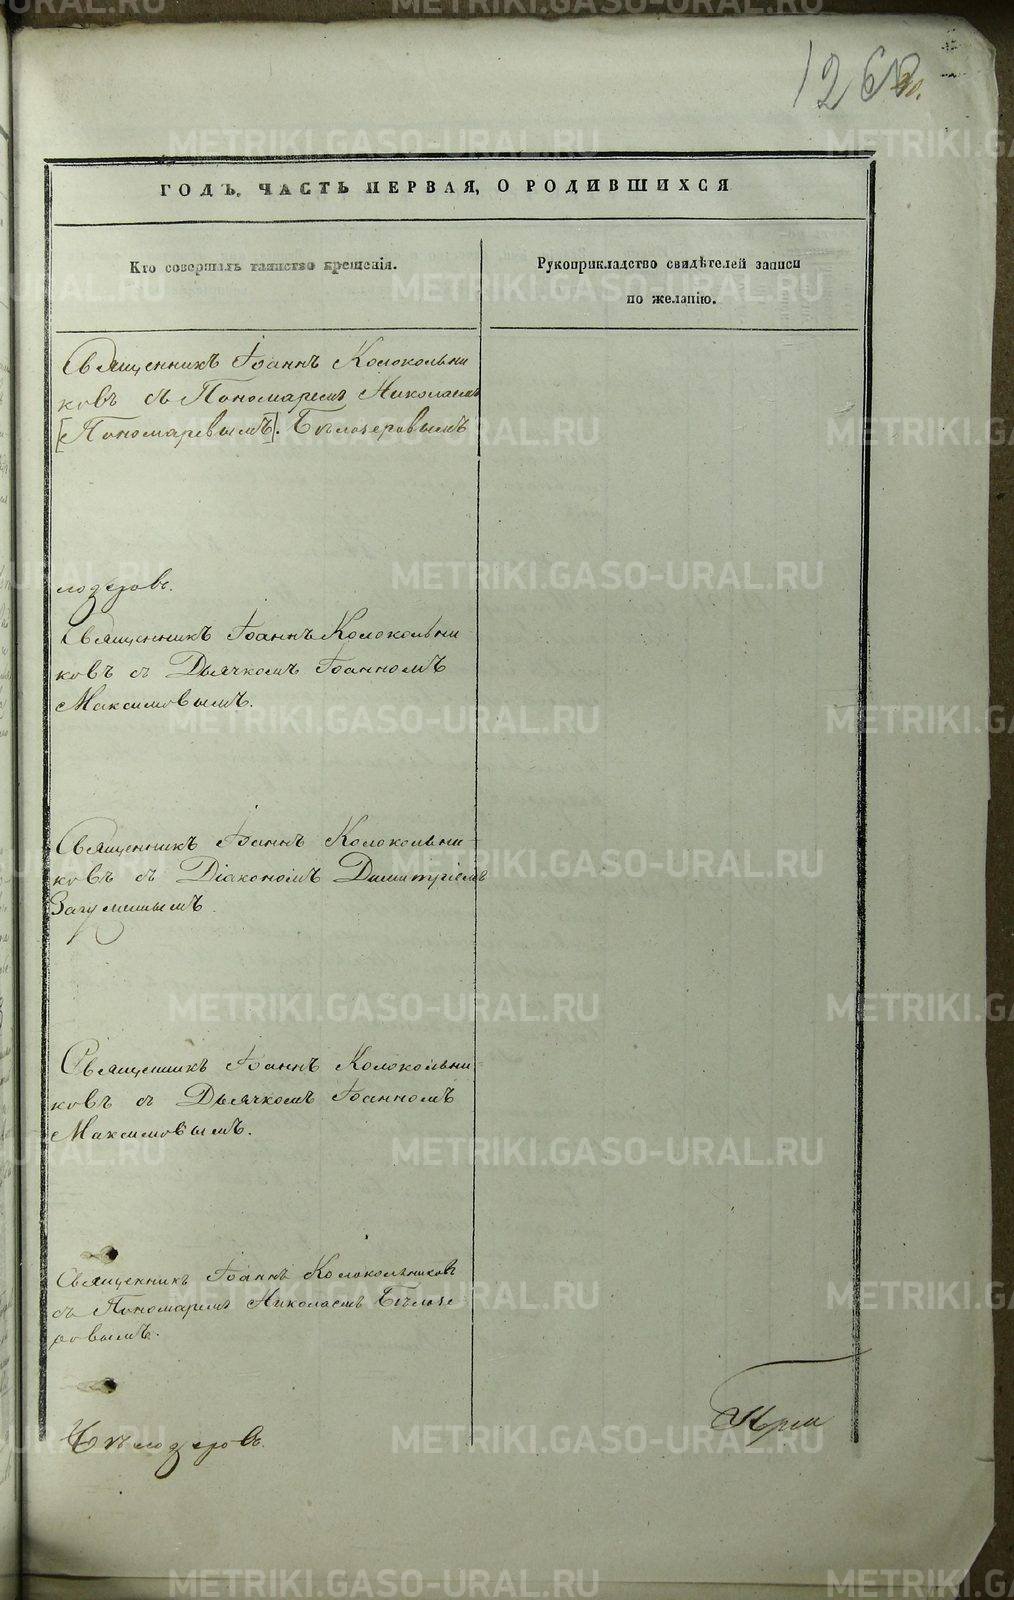 126
ГОДЪ, ЧАСТЬ ПЕРВАЯ, О РОДИВШИХСЯ
Кто совершалъ таинство крещенія.
Рукоприкладство свидѣтелей записи
по желанію.
Священникъ Іоаннъ Колокольни
ковъ съ Пономаремъ Николаемъ
[Пономаревымъ]. Бѣлозеровымъ
лозеровъ.
Священникъ Іоаннъ Колокольни
ковъ съ Дьячкомъ Іоанномъ
Максимовымъ.
Священникъ Іоаннъ Колокольни
ковъ съ Діакономъ Димитріемъ
Загуменнымъ
Священникъ Іоаннъ Колокольни
ковъ съ Дьячкомъ Іоанномъ
Максимовымъ.
Священникъ Іоаннъ Колокольниковъ
съ Пономаремъ Николаемъ Бѣлозе
ровымъ.
Бѣлозеровъ.
METRIKI.GASO-URAL.RU